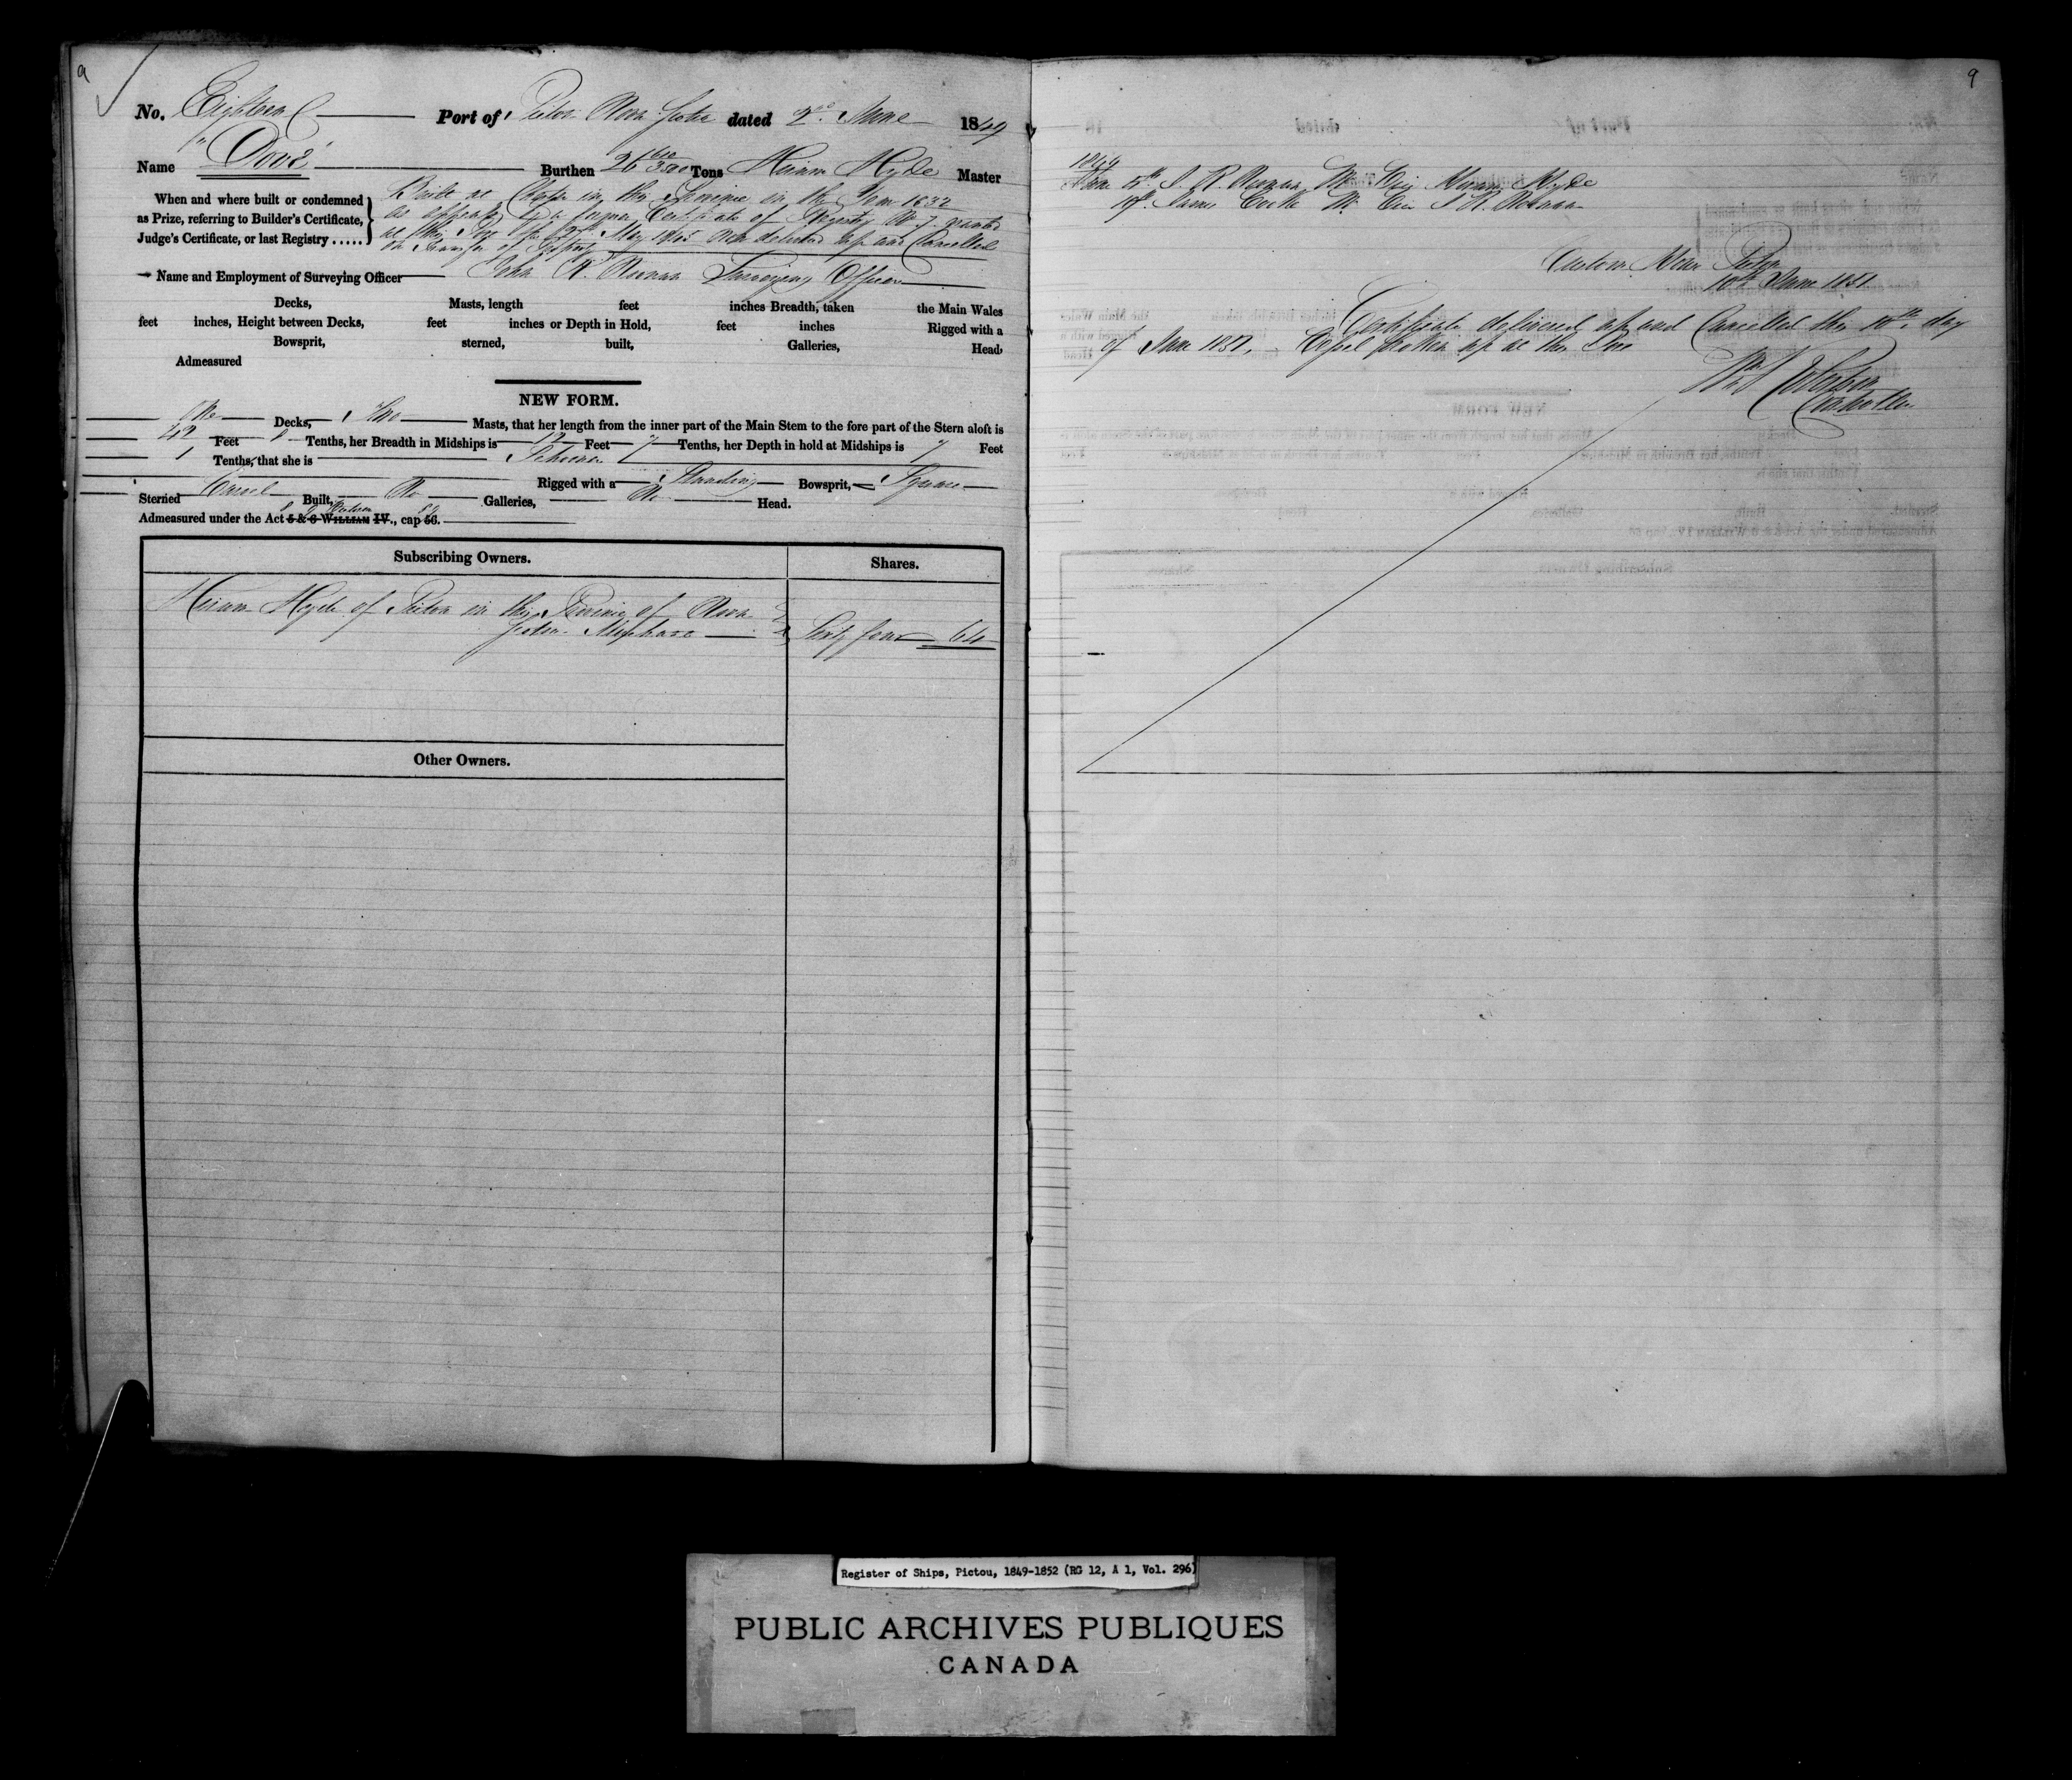 9
No. Eighteen Port of Pictou Nova Scotia dated 2nd June 1849
Name "Dove" Burthen 26 Tons Hiram Hyde Master
When and where built or condemned
as Prize, referring to Builder's Certificate,
Judge's Certificate, or last Registry .....
Built at in this Province in the Year 1832
as appears by a former Certificate of Registry No 7 granted
at this Port the May 1845 now delivered up and Cancelled
on Transfer of Property
Name and Employment of Surveying Officer John R. Noonan Surveying Officer
Decks, Masts, length feet inches Breadth, taken the Main Wales
feet inches, Height between Decks, feet inches or Depth in Hold, feet inches Rigged with a
Bowsprit, sterned, built, Galleries, Head,
Admeasured
NEW FORM.
One Decks, Two Masts, that her length from the inner part of the Main Stem to the fore part of the Stern aloft is
42 Feet Tenths, her Breadth in Midships is 12 Feet 7 Tenths, her Depth in hold at Midships is 7 Feet
1 Tenths, that she is Schooner Rigged with a Standing Bowsprit, Square
Sterned Carvel Built, No Galleries, No Head.
Admeasured under the Act 5 & 6 WILLIAM IV., cap 56.
Subscribing Owners. Shares.
Hiram Hyde of Pictou in the Province of Nova
Scotia Merchant Sixty four 64
Other Owners.
9
1849
June 5th J. R. Noonan Mr Vice Hiram Hyde
James Mr Vice J R Noonan
Custom House Pictou
10th June 1851
Certificate delivered up and Cancelled this 10th day
of June 1851. Vessel broken up at this Port
Controller
Register of Ships, Pictou, 1849-1852 (RG 12, A 1, Vol. 296)
PUBLIC ARCHIVES PUBLIQUES
CANADA